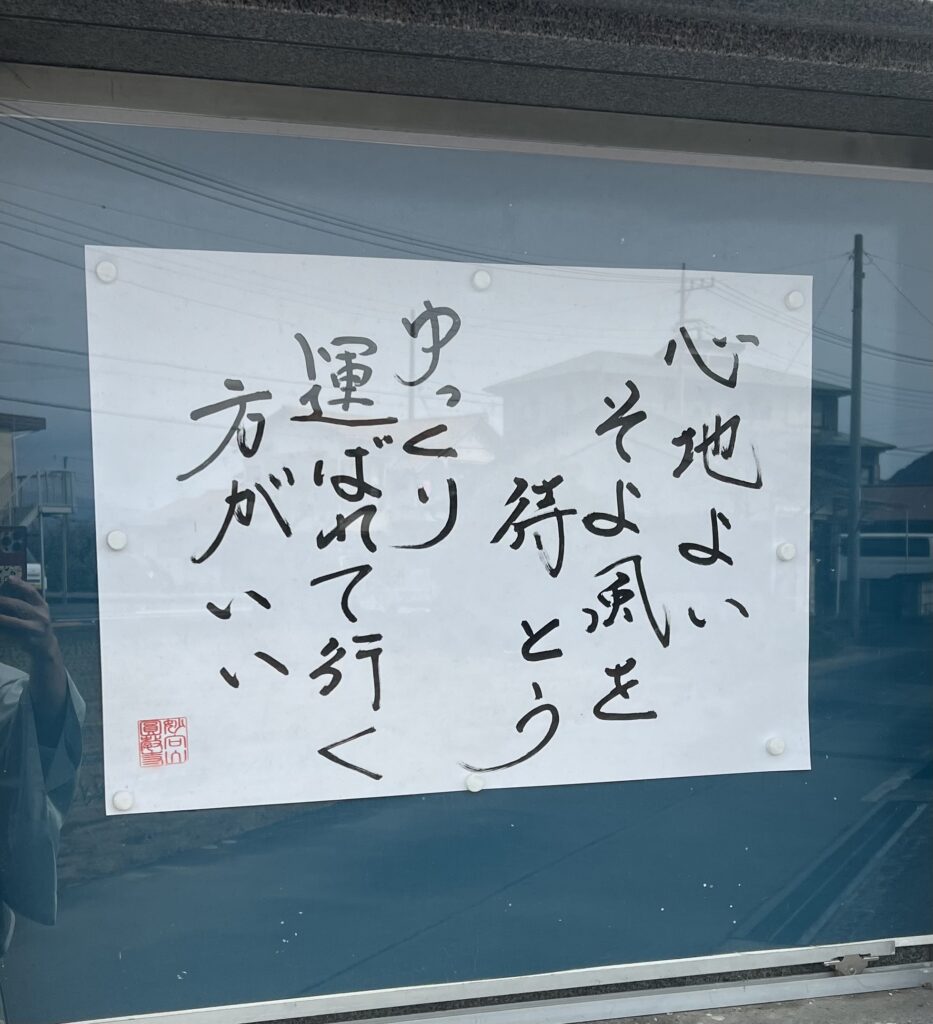 心地よい
そよ風を
待とう
ゆっくり
運ばれて行く
方がいい
妙向山
圓教寺